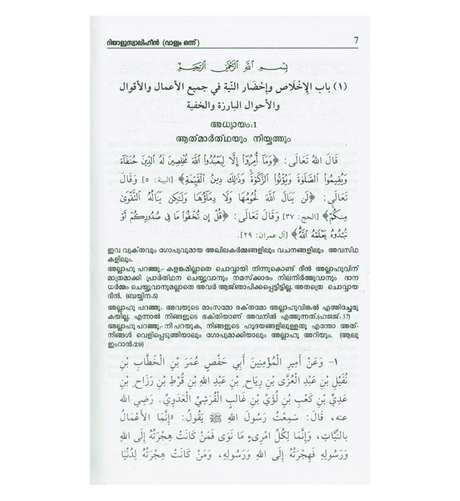 റിയാളുസ്വാലിഹീൻ (വാള്യം ഒന്ന്) 7
بِسْمِ اللَّهِ الرَّحْمَنِ الرَّحِيمِ
(١) باب الإخْلاصِ وإحْضَار النّية في جميع الأعمال والأقوال
والأحوال البارزة والخفية
അധ്യായം:1
ആത്മാർത്ഥയും നിയ്യത്തും
قَالَ اللهُ تَعَالَى: ﴿وَمَآ أُمِرُوٓاْ إِلَّا لِيَعْبُدُواْ ٱللَّهَ مُخْلِصِينَ لَهُ ٱلدِّينَ حُنَفَآءَ
وَيُقِيمُواْ ٱلصَّلَوٰةَ وَيُؤْتُواْ ٱلزَّكَوٰةَ وَذَٰلِكَ دِينُ ٱلْقَيِّمَةِ﴾ [البينة: ٥] وَقَالَ
تَعَالَى: ﴿لَن يَنَالَ ٱللَّهَ لُحُومُهَا وَلَا دِمَآؤُهَا وَلَٰكِن يَنَالُهُ ٱلتَّقْوَىٰ
مِنكُمْ﴾ [الحج: ٣٧] وَقَالَ تَعَالَى: ﴿قُلْ إِن تُخْفُواْ مَا فِي صُدُورِكُمْ أَوْ
تُبْدُوهُ يَعْلَمْهُ ٱللَّهُ﴾ [آل عمران: ٢٩].
ഇവ വ്യക്തവും ഗോപ്യവുമായ അഖിലകർമ്മങ്ങളിലും വചനങ്ങളിലും അവസ്ഥ
കളിലും.
അല്ലാഹു പറഞ്ഞു:- കളങ്കമില്ലാതെ ചൊവ്വായി നിന്നുകൊണ്ട് ദീൻ അല്ലാഹുവിന്
മാത്രമാക്കി പ്രാർത്ഥന ചെയ്യുവാനും നമസ്ക്കാരം നിലനിർത്തുവാനും ദാന
ധർമ്മം ചെയ്യുവാനുമല്ലാതെ അവർ ആജ്ഞാപിക്കപ്പെട്ടിട്ടില്ല. അതത്രെ ചൊവ്വായ
ദീൻ. (ബയ്യിന:5)
അല്ലാഹു പറഞ്ഞു. അവയുടെ മാംസമോ രക്തമോ അല്ലാഹുവിങ്കൽ എത്തിച്ചേരു
കയില്ല. എന്നാൽ നിങ്ങളുടെ ഭക്തിയാണ് അവനിൽ എത്തുന്നത്.(ഹജ്ജ്:37)
അല്ലാഹു പറഞ്ഞു:- നീ പറയുക, നിങ്ങളുടെ ഹൃദയങ്ങളിലുള്ളതു എന്തോ അത്-
നിങ്ങൾ വെളിപ്പെടുത്തിയാലും ഗോപ്യമാക്കിയാലും അല്ലാഹു അറിയും. (ആലു
ഇംറാൻ:29)
١- وَعَنْ أَمِيرِ الْمُؤْمِنِينَ أَبِي حَفْصٍ عُمَرَ بْنِ الْخَطَّابِ بْنِ
نُفَيْلِ بْنِ عَبْدِ الْعُزَّى بْنِ رِيَاحِ بْنِ عَبْدِ اللهِ بْنِ قُرْطِ بْنِ رَزَاحِ بْنِ
عَدِيِّ بْنِ كَعْبِ بْنِ لُؤَيِّ بْنِ غَالِبٍ الْقُرَشِيِّ الْعَدَوِيِّ. رَضِيَ الله
عنه، قَالَ: سَمِعْتُ رَسُولَ اللهِ ﷺ يَقُولُ: «إنَّمَا الأَعْمَالُ
بِالنِّيَّاتِ، وَإِنَّمَا لِكُلِّ امْرِىءٍ مَا نَوَى فَمَنْ كَانَتْ هِجْرَتُهُ إِلَى اللهِ
وَرَسُولِهِ فَهِجْرَتُهُ إِلَى اللهِ وَرَسُولِهِ، وَمَنْ كَانَتْ هِجْرَتُهُ لِدُنْيَا